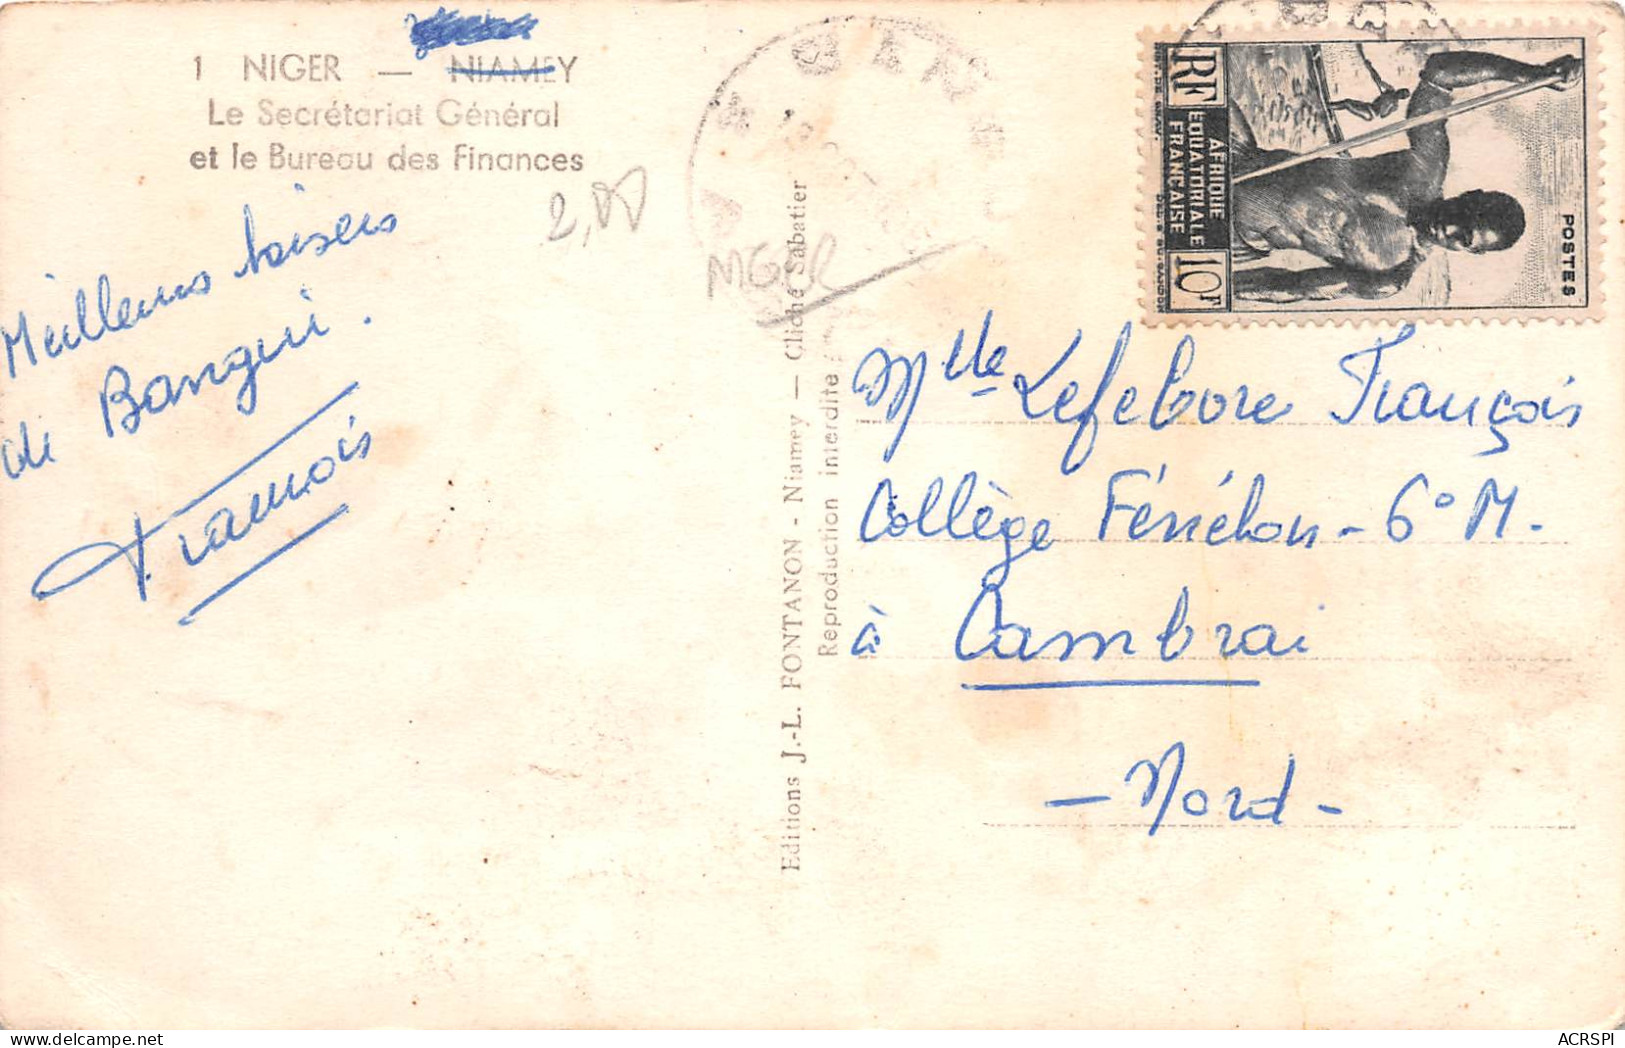 1 NIGER — NIAMEY
Le Secrétariat Général
et le Bureau des Finances
2,00
NIGER
Meilleurs baisers
de Bangui.
François
Editions J.-L. FONTANON - Niamey — Cliché Sabatier
Reproduction interdite
RF
AFRIQUE
EQUATORIALE
FRANÇAISE
10F
POSTES
Mlle Lefebvre François
Collège Fénélon - 6° M.
à Cambrai
- Nord -
ACRSPI